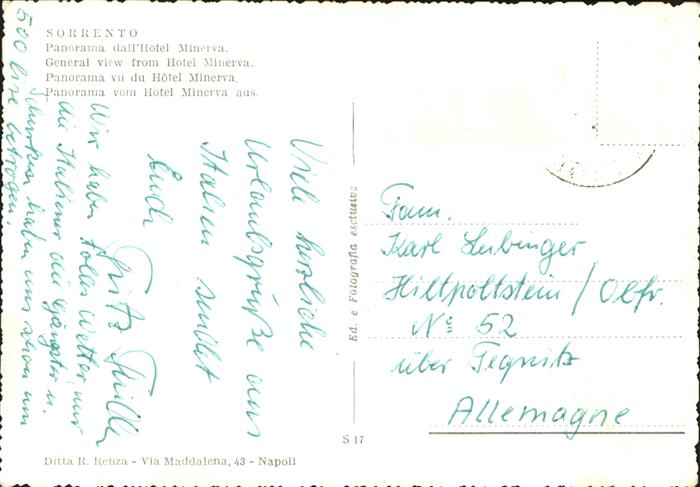 SORRENTO
Panorama dall'Hotel Minerva.
General view from Hotel Minerva.
Panorama vu du Hôtel Minerva.
Panorama vom Hotel Minerva aus.
Viele herzliche
Urlaubsgrüße aus
Italien sendet
Euch
Fritz
Wir haben tolles Wetter nur
die Italiener die Gangster u.
haben uns schon um
500 Lire betrogen.
Ed. e Fotografia esclusiva
Fam.
Karl Leibinger
Hiltpoltstein / Obfr.
No 52
über Pegnitz
Allemagne
S 17
Ditta R. Renza - Via Maddalena, 43 - Napoli